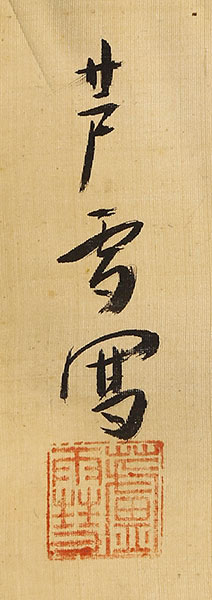 芦雪写